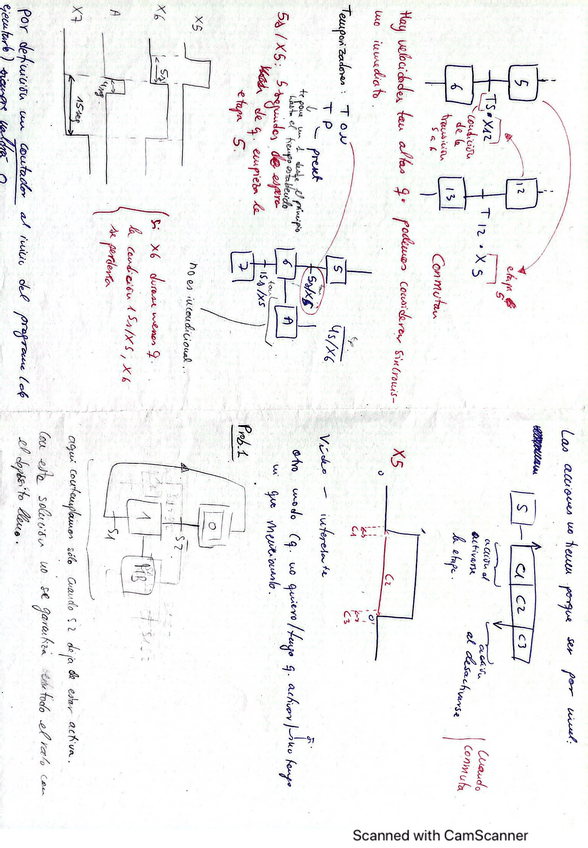 5
6
TS·X12
condición de la transición 5→6
12
13
T12·X5
etapa 5
Conmutan
Hay velocidades tan altas q. podemos considerar sincronis-
mo inmediato
Temporizadores: TON
TP
preset
te pone un 1 desde el principio
hasta el tiempo establecido
5s/X5: 5 segundos de espera
desde q. empieza la
etapa 5.
5
5s/X5
6
A
4s/X6
15s/X5
7
no es incondicional.
X5
X6
5s
A
X7
15seg
Si X6 durase menos q.
la condición 15s/X5, X6
se perdería
por definición un contador al inicio del programa (al
ejecutarlo)
Las acciones no tienen porque ser por nivel:
5
C1 C2 C3
acción al activarse la etapa.
acción al desactivarse
cuando conmuta
X5
0
1
0
C1
C2
C3
Video - interesante
otro modo (q. no quiero/tengo q. activar/
ni que mencionarlo.
Prob. 1
0
S2
1
MB
S1
aquí contemplamos sólo cuando S2 deja de estar activa.
Con esta solución no se garantiza todo el rato con
el depósito lleno.
Scanned with CamScanner